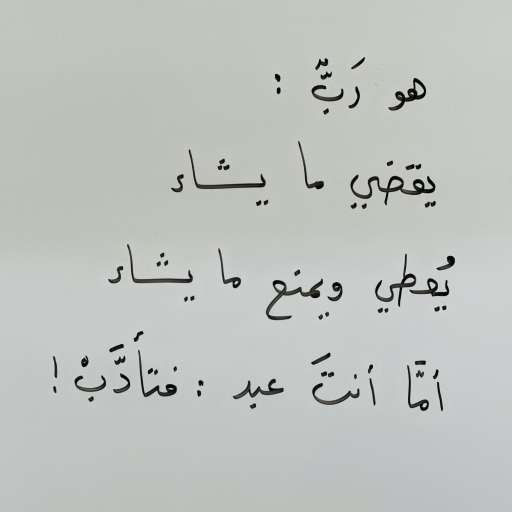 هو رَبٌّ :
يقضي ما يشاء
يُعطي ويمنع ما يشاء
أمَّا أنتَ عبد : فتأدَّبْ !